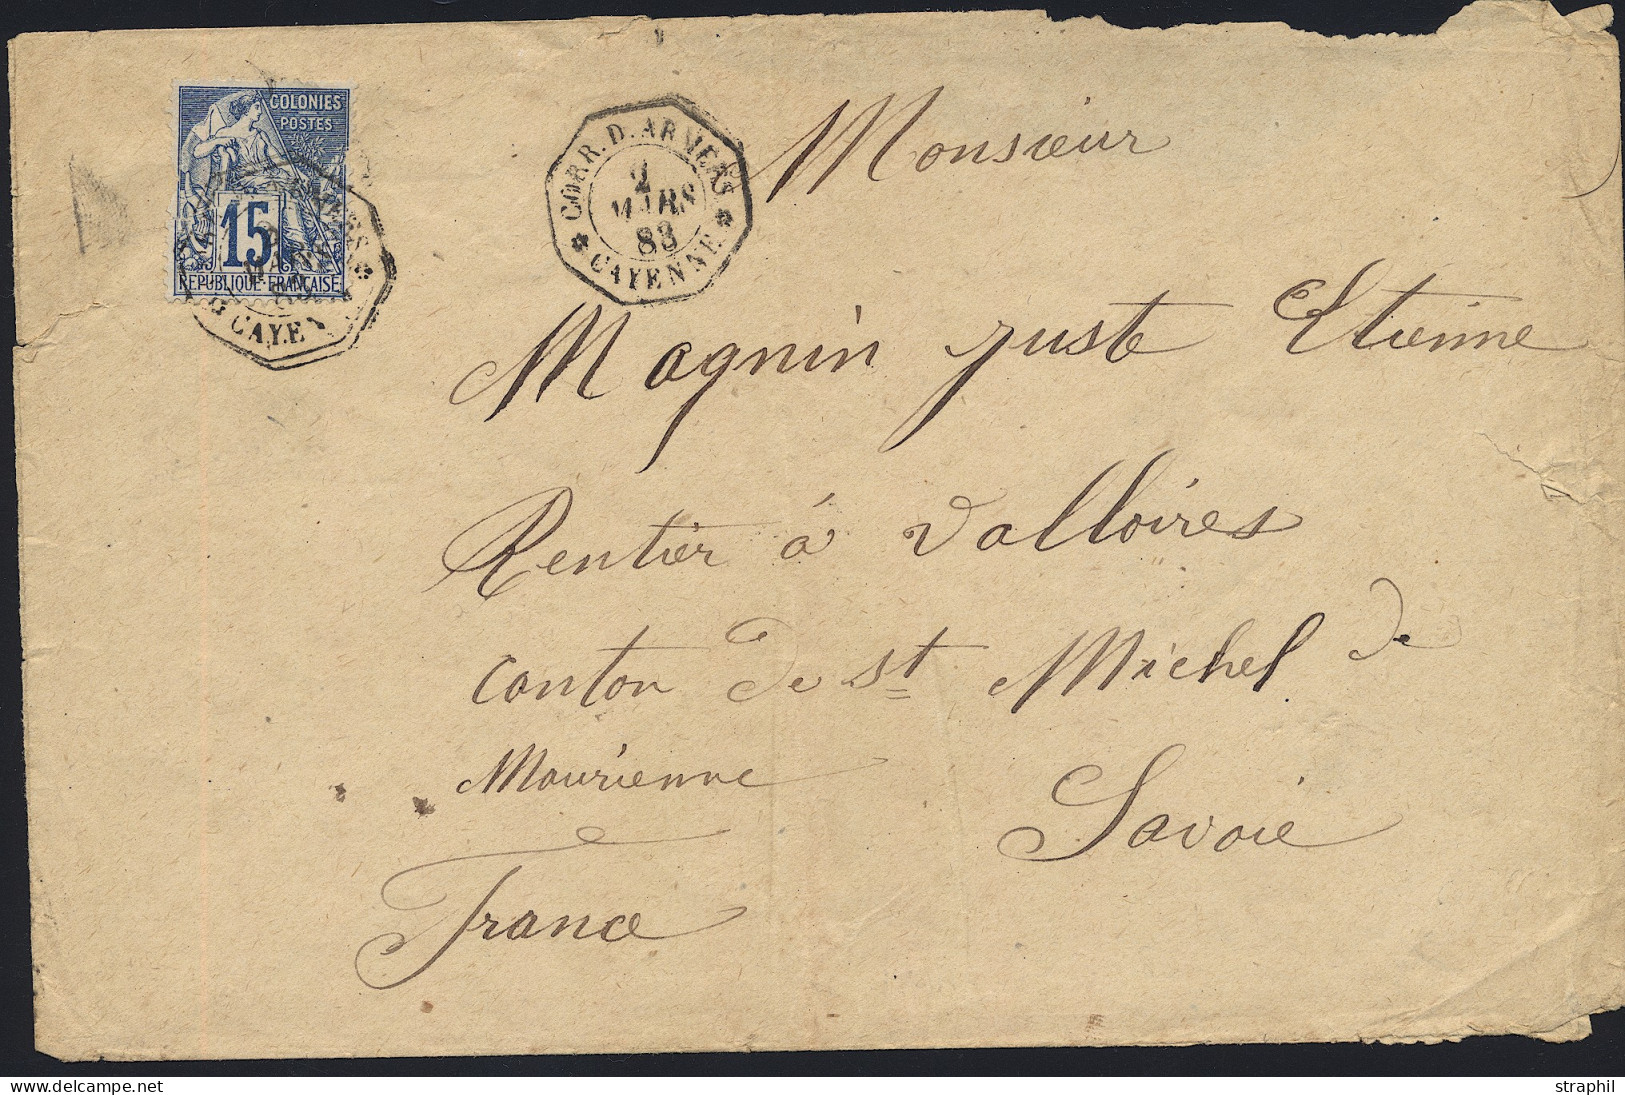 COLONIES
POSTES
15
REPUBLIQUE FRANÇAISE
CORR. D. ARMEES
2
MARS
83
CAYENNE
Monsieur
Magnin juste Etienne
Rentier á Valloires
canton De st Michel De
Maurienne
Savoie
France
straphil